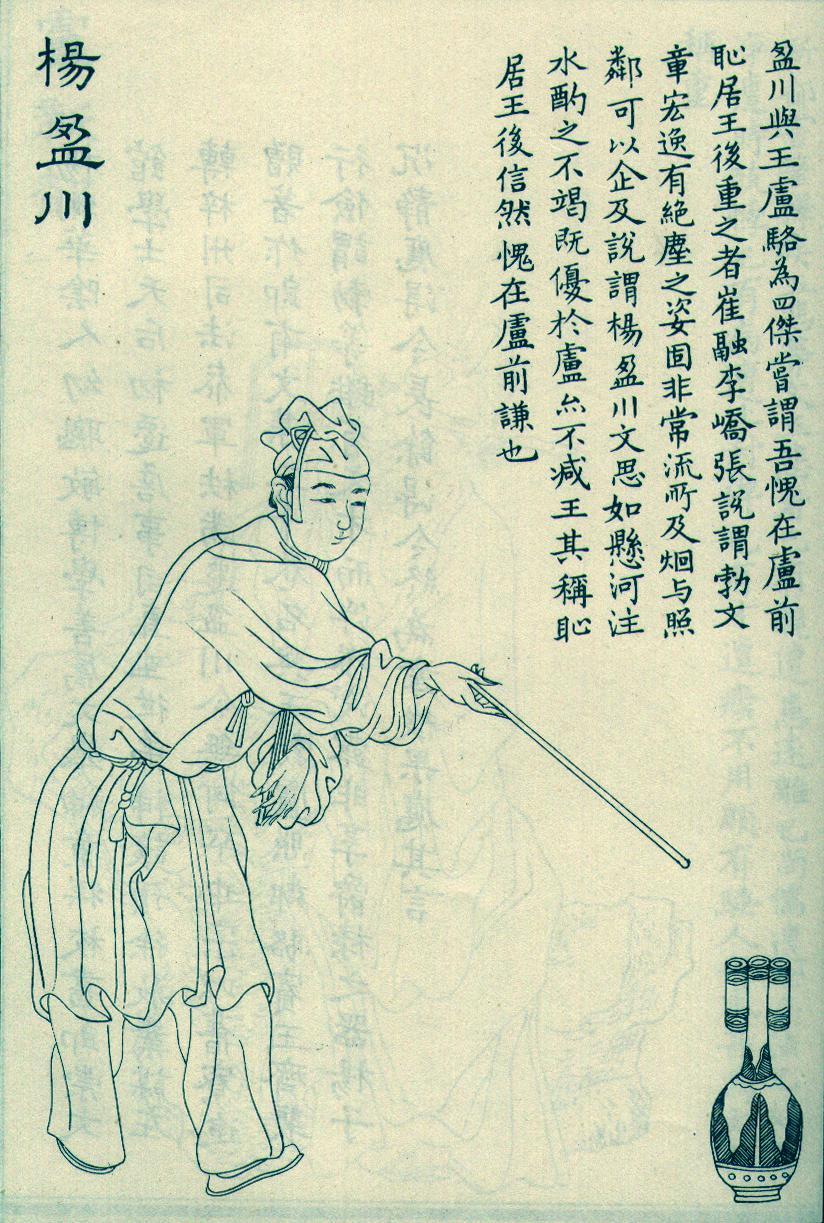 盈川與王盧駱為四傑嘗謂吾愧在盧前
恥居王後重之者崔融李嶠張說謂勃文
章宏逸有絕塵之姿固非常流所及炯与照
鄰可以企及說謂楊盈川文思如懸河注
水酌之不竭既優於盧亦不減王其稱恥
居王後信然愧在盧前謙也
楊盈川